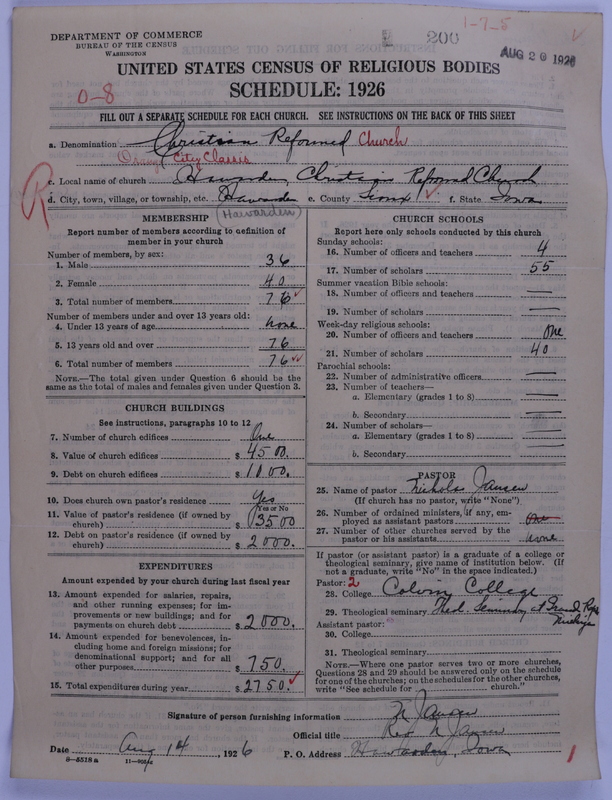 DEPARTMENT OF COMMERCE
BUREAU OF THE CENSUS
WASHINGTON
200
1-7-5
AUG 20 1926
UNITED STATES CENSUS OF RELIGIOUS BODIES
SCHEDULE: 1926
0-8
FILL OUT A SEPARATE SCHEDULE FOR EACH CHURCH. SEE INSTRUCTIONS ON THE BACK OF THIS SHEET
a. Denomination Christian Reformed Church
Orange City Classis
c. Local name of church Hawarden Christian Reformed Church
R
d. City, town, village, or township, etc. Hawarden e. County Sioux f. State Iowa
(Hawarden)
MEMBERSHIP
Report number of members according to definition of member in your church
Number of members, by sex:
1. Male 36
2. Female 40
3. Total number of members 76
Number of members under and over 13 years old:
4. Under 13 years of age none
5. 13 years old and over 76
6. Total number of members 76
NOTE.—The total given under Question 6 should be the
same as the total of males and females given under Question 3.
CHURCH BUILDINGS
See instructions, paragraphs 10 to 12
7. Number of church edifices One
8. Value of church edifices $ 4500.
9. Debt on church edifices $ 1000.
10. Does church own pastor's residence Yes
Yes or No
11. Value of pastor's residence (if owned by
church) $ 3500
12. Debt on pastor's residence (if owned by
church) $ 2000.
EXPENDITURES
Amount expended by your church during last fiscal year
13. Amount expended for salaries, repairs,
and other running expenses; for im-
provements or new buildings; and for
payments on church debt $ 2000.
14. Amount expended for benevolences, in-
cluding home and foreign missions; for
denominational support; and for all
other purposes $ 750.
15. Total expenditures during year $ 2750.
CHURCH SCHOOLS
Report here only schools conducted by this church
Sunday schools:
16. Number of officers and teachers 4
17. Number of scholars 55
Summer vacation Bible schools:
18. Number of officers and teachers —
19. Number of scholars —
Week-day religious schools:
20. Number of officers and teachers One
21. Number of scholars 40
Parochial schools:
22. Number of administrative officers —
23. Number of teachers—
a. Elementary (grades 1 to 8) —
b. Secondary —
24. Number of scholars—
a. Elementary (grades 1 to 8) —
b. Secondary —
PASTOR
25. Name of pastor Nichols Jansen
(If church has no pastor, write "None")
26. Number of ordained ministers, if any, em-
ployed as assistant pastors one
27. Number of other churches served by the
pastor or his assistants none
If pastor (or assistant pastor) is a graduate of a college or
theological seminary, give name of institution below. (If
not a graduate, write "No" in the space indicated.)
Pastor: 2
28. College Calvin College
29. Theological seminary Theol. Seminary at Grand Rapids
Michigan
Assistant pastor:
30. College
31. Theological seminary
NOTE.—Where one pastor serves two or more churches,
Questions 28 and 29 should be answered only on the schedule
for one of the churches; on the schedules for the other churches,
write "See schedule for ______ church."
Signature of person furnishing information N Jansen
Official title Rev. N Jansen
Date Aug 14, 1926 P. O. Address Hawarden, Iowa
8—5518 a
1